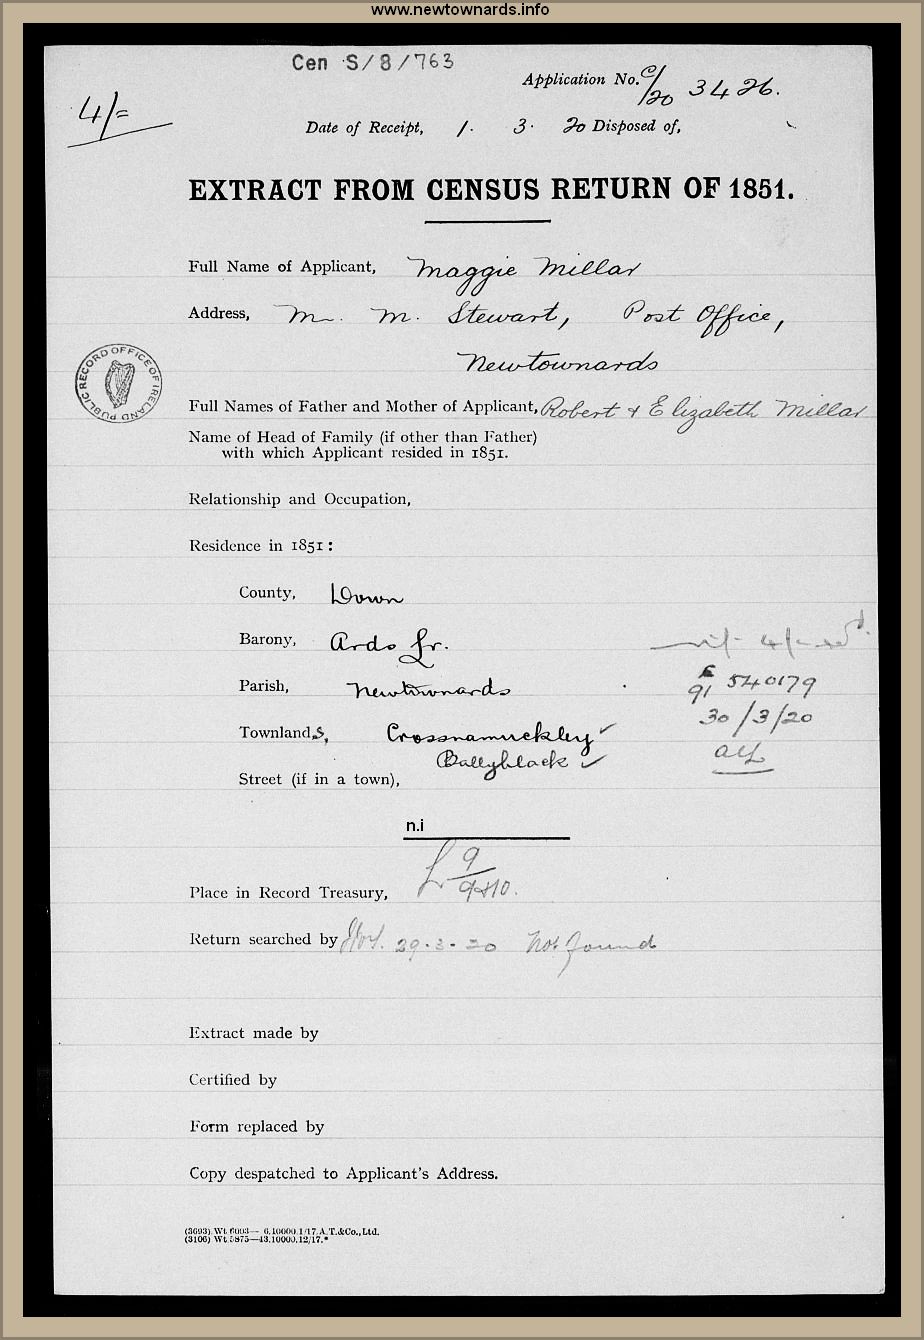 www.newtownards.info
Cen S/8/763
Application No. C/20 3426.
4/=
Date of Receipt, 1. 3. 20 Disposed of,
EXTRACT FROM CENSUS RETURN OF 1851.
Full Name of Applicant, Maggie Millar
Address, M. Stewart, Post Office,
Newtownards
PUBLIC RECORD OFFICE OF IRELAND
Full Names of Father and Mother of Applicant, Robert & Elizabeth Millar
Name of Head of Family (if other than Father)
with which Applicant resided in 1851.
Relationship and Occupation,
Residence in 1851:
County, Down
Barony, Ards Lr.
4/-
Parish, Newtownards
91 540179
30/3/20
Townlands, Crossnamuckley ✓
Ballyblack ✓
Street (if in a town),
n.i
9
Place in Record Treasury,
Return searched by 29.3.20 Not found
Extract made by
Certified by
Form replaced by
Copy despatched to Applicant's Address.
(3693) Wt. 6093— 6,10000.1/17.A.T.&Co., Ltd.
(3106) Wt 5875—43.10000.12/17.*